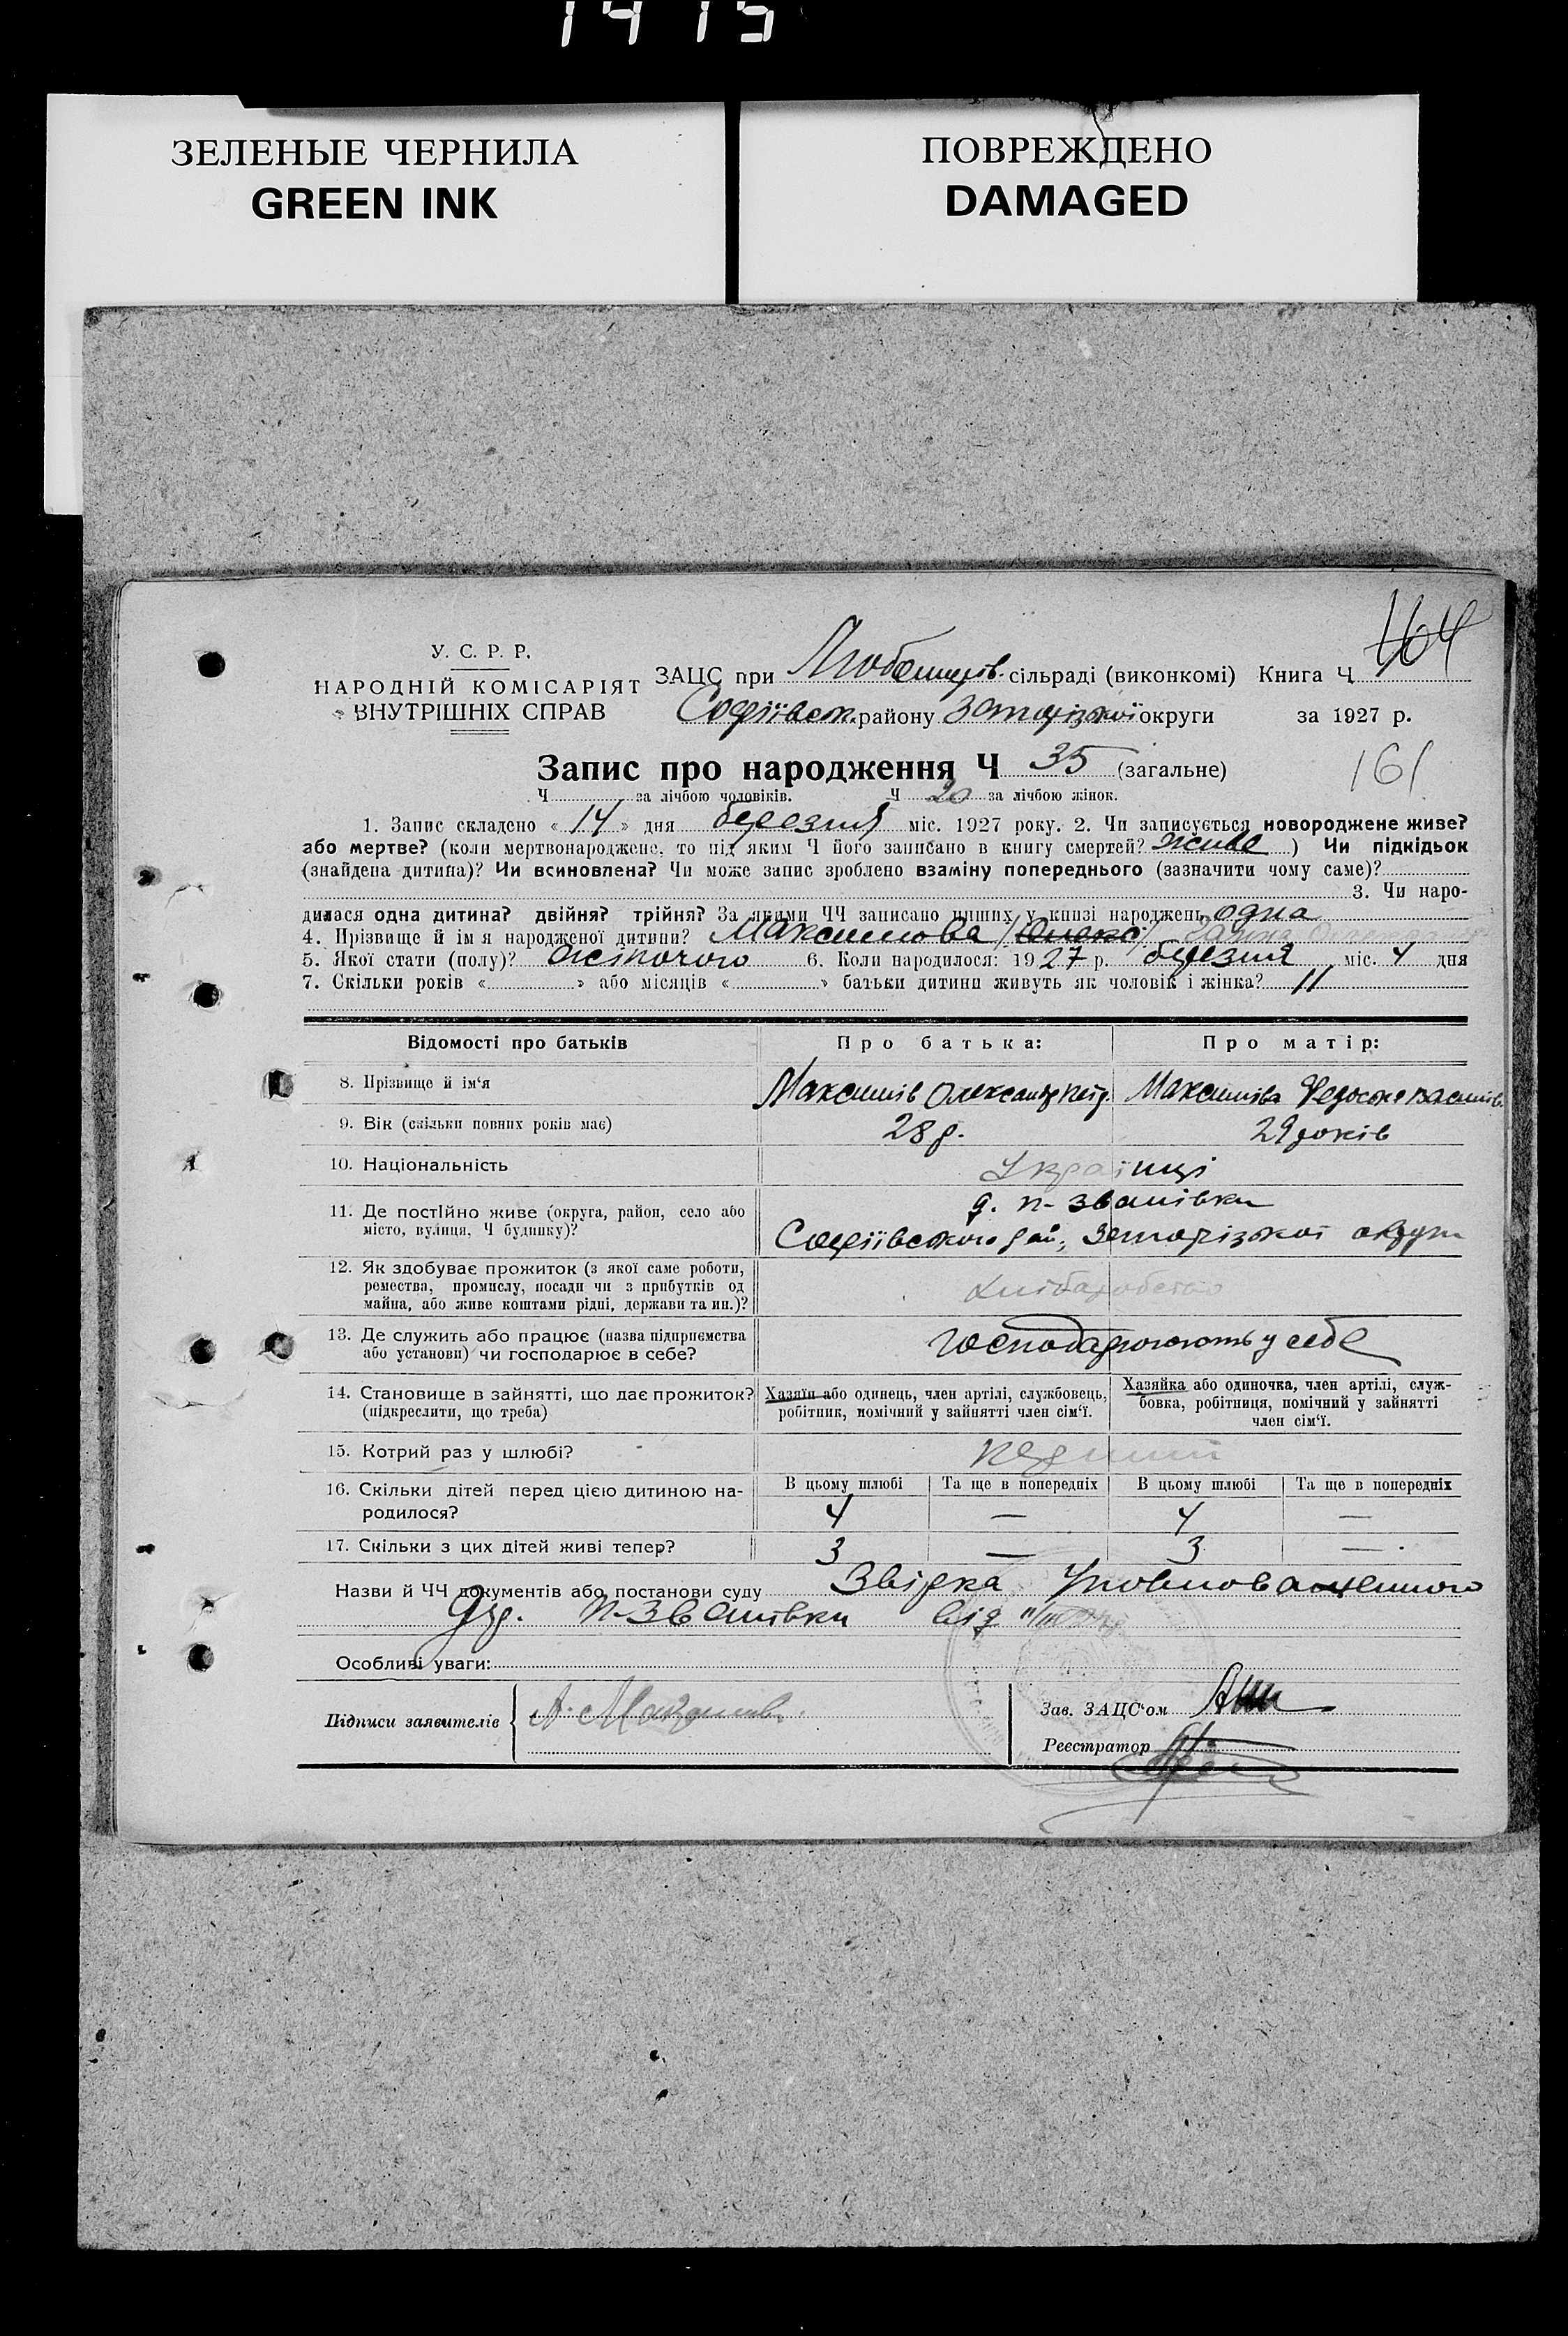 1415
ЗЕЛЕНЫЕ ЧЕРНИЛА
GREEN INK
ПОВРЕЖДЕНО
DAMAGED
164
У. С. Р. Р.
НАРОДНІЙ КОМІСАРІЯТ
ВНУТРІШНІХ СПРАВ
ЗАЦС при сільраді (виконкомі) Книга Ч
Софіївськ. району Запорізької округи за 1927 р.
Запис про народження Ч 35 (загальне)
161
Ч за лічбою чоловіків. Ч 20 за лічбою жінок.
1. Запис складено « 14 » дня березня міс. 1927 року. 2. Чи записується новороджене живе?
або мертве? (коли мертвонароджене, то під яким Ч його записано в книгу смертей? живе ) Чи підкідьок
(знайдена дитина)? Чи всиновлена? Чи може запис зроблено взаміну попереднього (зазначити чому саме)?
3. Чи наро-
дилася одна дитина? двійня? трійня? За якими ЧЧ записано инших у книзі народжень одна
4. Прізвище й ім я народженої дитини? Максимова
5. Якої стати (полу)? жіночого 6. Коли народилося: 1927 р. березня міс. 4 дня
7. Скільки років « » або місяців « » батьки дитини живуть як чоловік і жінка? 11
Відомості про батьків
Про батька:
Про матір:
8. Прізвище й ім‘я
Максимів Олександр Петр.
Максимова Федосья Васил.
9. Вік (скільки повних років має)
28 р.
29 років
10. Національність
Українці
11. Де постійно живе (округа, район, село або
місто, вулиця, Ч будинку)?
д. п-Званівки
Софіївського рай., Запорізької округи
12. Як здобуває прожиток (з якої саме роботи,
ремества, промислу, посади чи з прибутків од
майна, або живе коштами рідні, держави та ин.)?
хліборобство
13. Де служить або працює (назва підприємства
або установи) чи господарює в себе?
Господарюють у себе
14. Становище в зайнятті, що дає прожиток?
(підкреслити, що треба)
Хазяїн або одинець, член артілі, службовець,
робітник, помічний у зайнятті член сім‘ї.
Хазяйка або одиночка, член артілі, служ-
бовка, робітниця, помічний у зайнятті
член сім‘ї.
15. Котрий раз у шлюбі?
перший
16. Скільки дітей перед цією дитиною на-
родилося?
В цьому шлюбі Та ще в попередніх В цьому шлюбі Та ще в попередніх
4 — 4 —
17. Скільки з цих дітей живі тепер?
3 — 3 —
Назви й ЧЧ документів або постанови суду Звірка Уповноваженного
п-Званівки від
Особливі уваги:
Підписи заявителів
Зав. ЗАЦС‘ом
Реєстратор